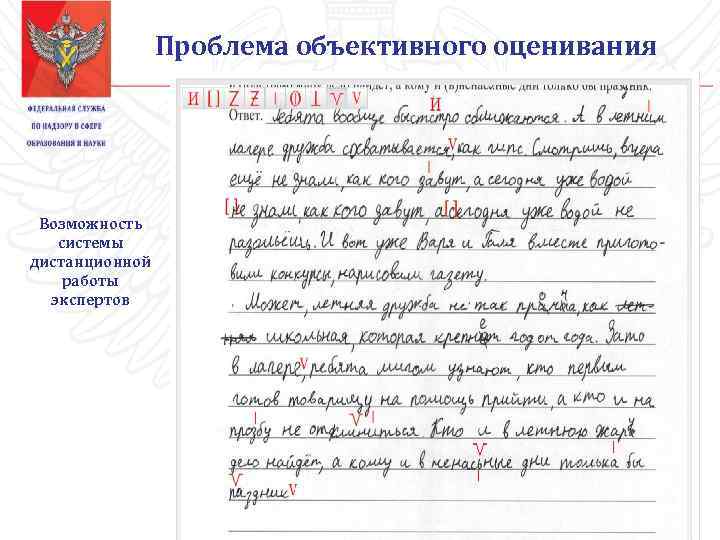 Проблема объективного оценивания
ФЕДЕРАЛЬНАЯ СЛУЖБА
ПО НАДЗОРУ В СФЕРЕ
ОБРАЗОВАНИЯ И НАУКИ
Возможность
системы
дистанционной
работы
экспертов
найдет, а кому и (в)ненас(?)ные дни только бы праздник.
И [ ] Z Ƶ | О ⊥ V V
И |
Ответ. Ребята вообще быстро сближаются. А в летним
лагере дружба схватывается, как гипс. Смотришь, вчера
V
|
ещё не знали, как кого завут, а сегодня уже водой
[ ] [ ]
не знали, как кого завут, а сегодня уже водой не
разольёшь. И вот уже Варя и Галя вместе пригото-
вили конкурсы, нарисовали газету.
Может, летняя дружба не так прочна, как лет-
няя школьная, которая крепнет год от года. Зато
в лагере, ребята мигом узнают, кто первым
V
готов товарищу на помощь прийти, а кто и на
| V |
прозбу не откликниться. Кто и в летнюю жару
V |
дело найдёт, а кому и в ненасные дни только бы
V |
паздник
V